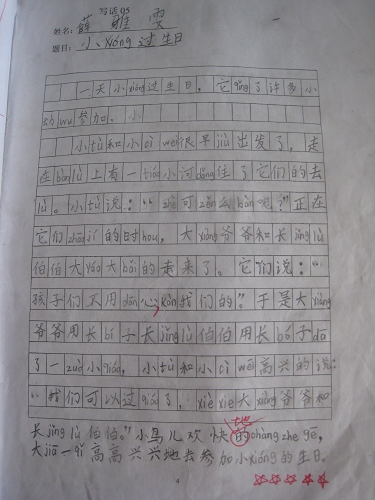 写话 05
姓名: 薛雅雯
题目: 小xióng过生日
一天小xióng过生日，它qǐng了许多小
wù参加。小
小tù和小cì wei很早jiù出发了，走
在bàn lù上有一tiáo小河dǎng住了它们的去
lù。小tù说：“zhè可zěn么bàn呢？”正在
它们zháo jí的时hou，大xiàng爷爷和长jǐng lù
伯伯大yáo大bǎi的走来了。它们说：“
孩子们不用dān心，kàn我们的”于是大xiàng
爷爷用长bí子长jǐng lù伯伯用长bó子dā
了一zuò小qiáo，小tù和小cì wei高兴的说：
“我们可以过qiáo了，xiè xie大xiàng爷爷和
长jǐng lù伯伯。”小鸟儿欢快的chàng zhe gē，
地
大jiā一qǐ高高兴兴地去参加小xióng的生日。
4